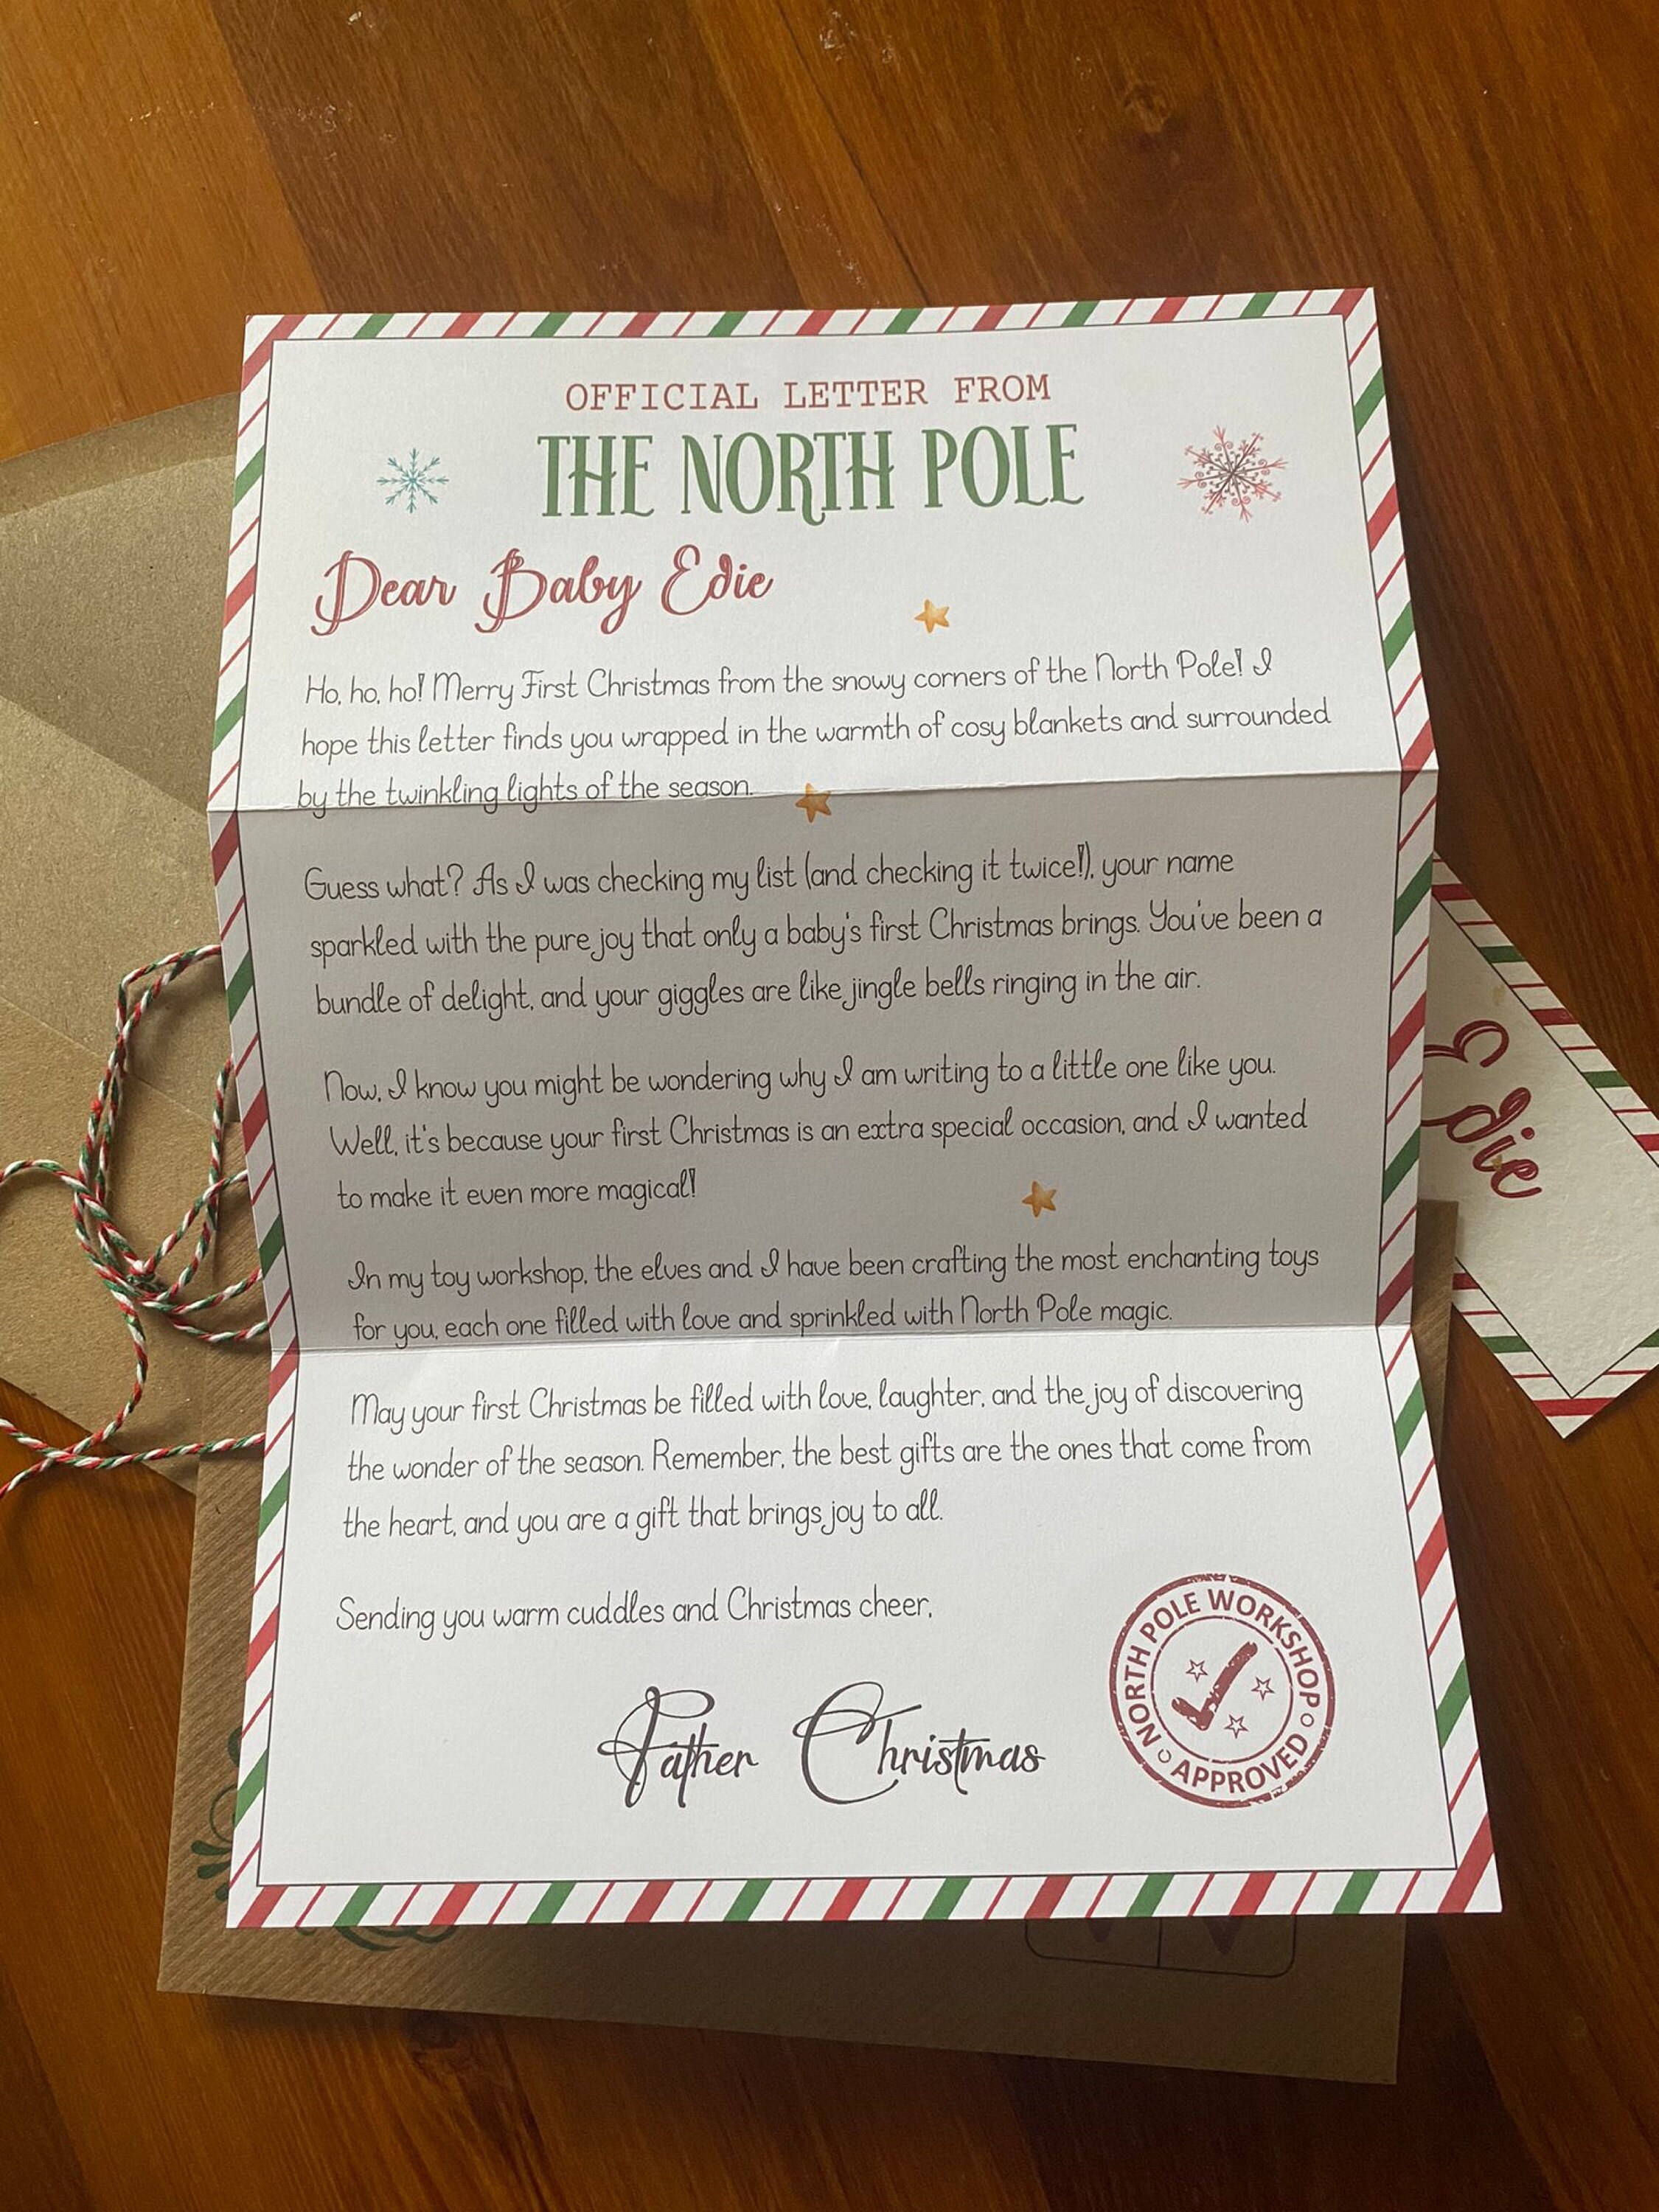 OFFICIAL LETTER FROM
THE NORTH POLE
Dear Baby Edie
Ho, ho, ho! Merry First Christmas from the snowy corners of the North Pole! I
hope this letter finds you wrapped in the warmth of cosy blankets and surrounded
by the twinkling lights of the season.
Guess what? As I was checking my list (and checking it twice!), your name
sparkled with the pure joy that only a baby's first Christmas brings. You've been a
bundle of delight, and your giggles are like jingle bells ringing in the air.
Now, I know you might be wondering why I am writing to a little one like you.
Well, it's because your first Christmas is an extra special occasion, and I wanted
to make it even more magical!
In my toy workshop, the elves and I have been crafting the most enchanting toys
for you, each one filled with love and sprinkled with North Pole magic.
May your first Christmas be filled with love, laughter, and the joy of discovering
the wonder of the season. Remember, the best gifts are the ones that come from
the heart, and you are a gift that brings joy to all.
Sending you warm cuddles and Christmas cheer,
Father Christmas
NORTH POLE WORKSHOP
APPROVED
Edie